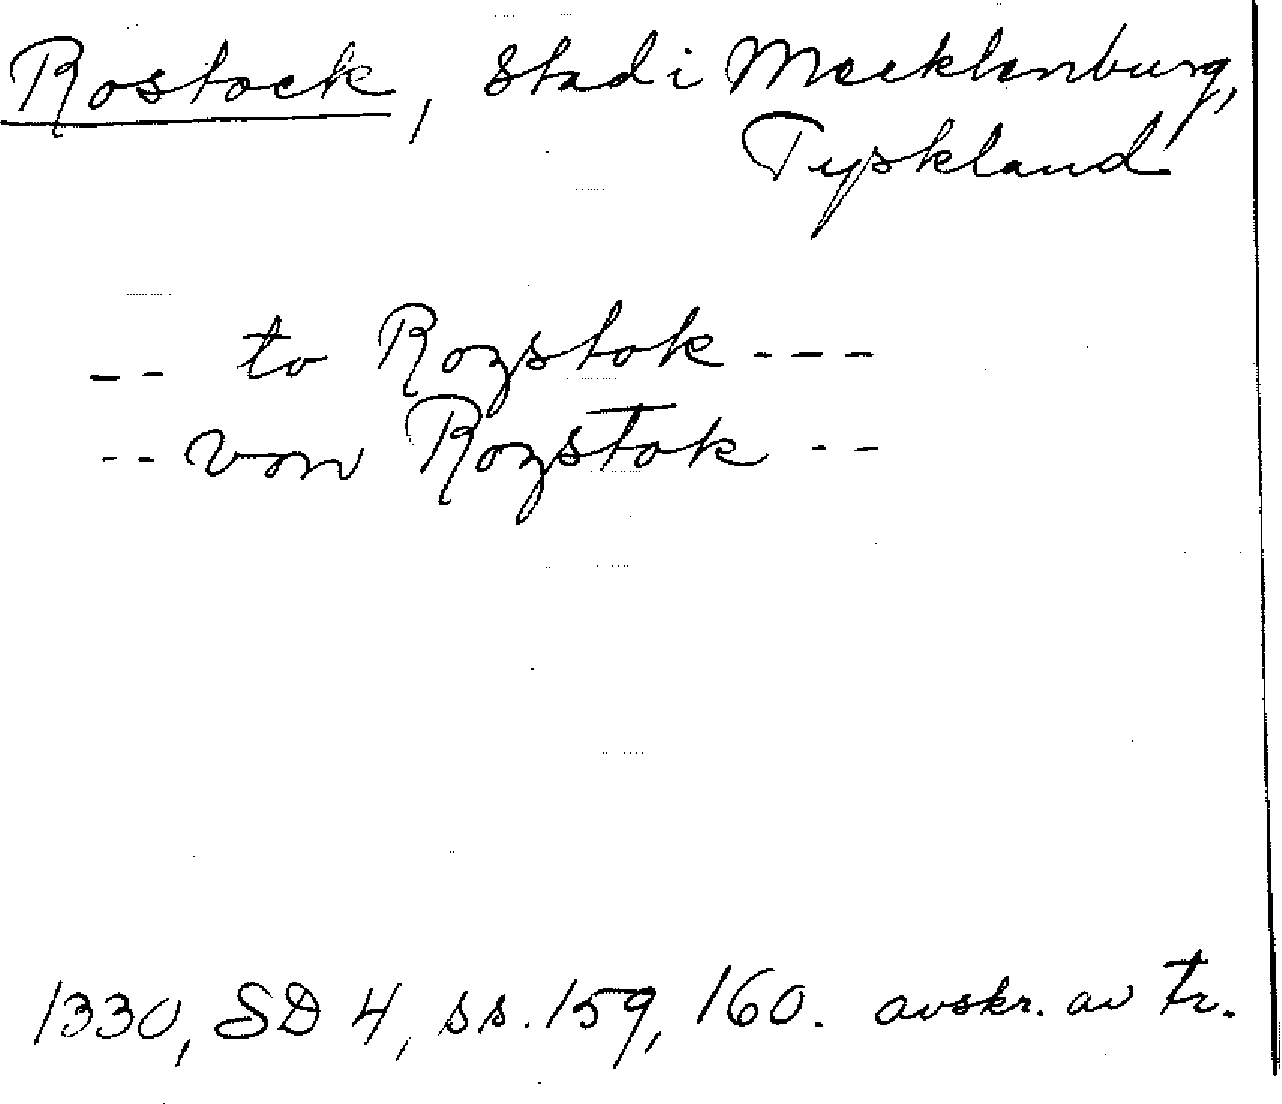 Rostock, stad i Mecklenburg,
Tyskland
-- to Rozstok ---
-- von Rozstok --
1330, SD 4, ss. 159, 160. avskr. av tr.